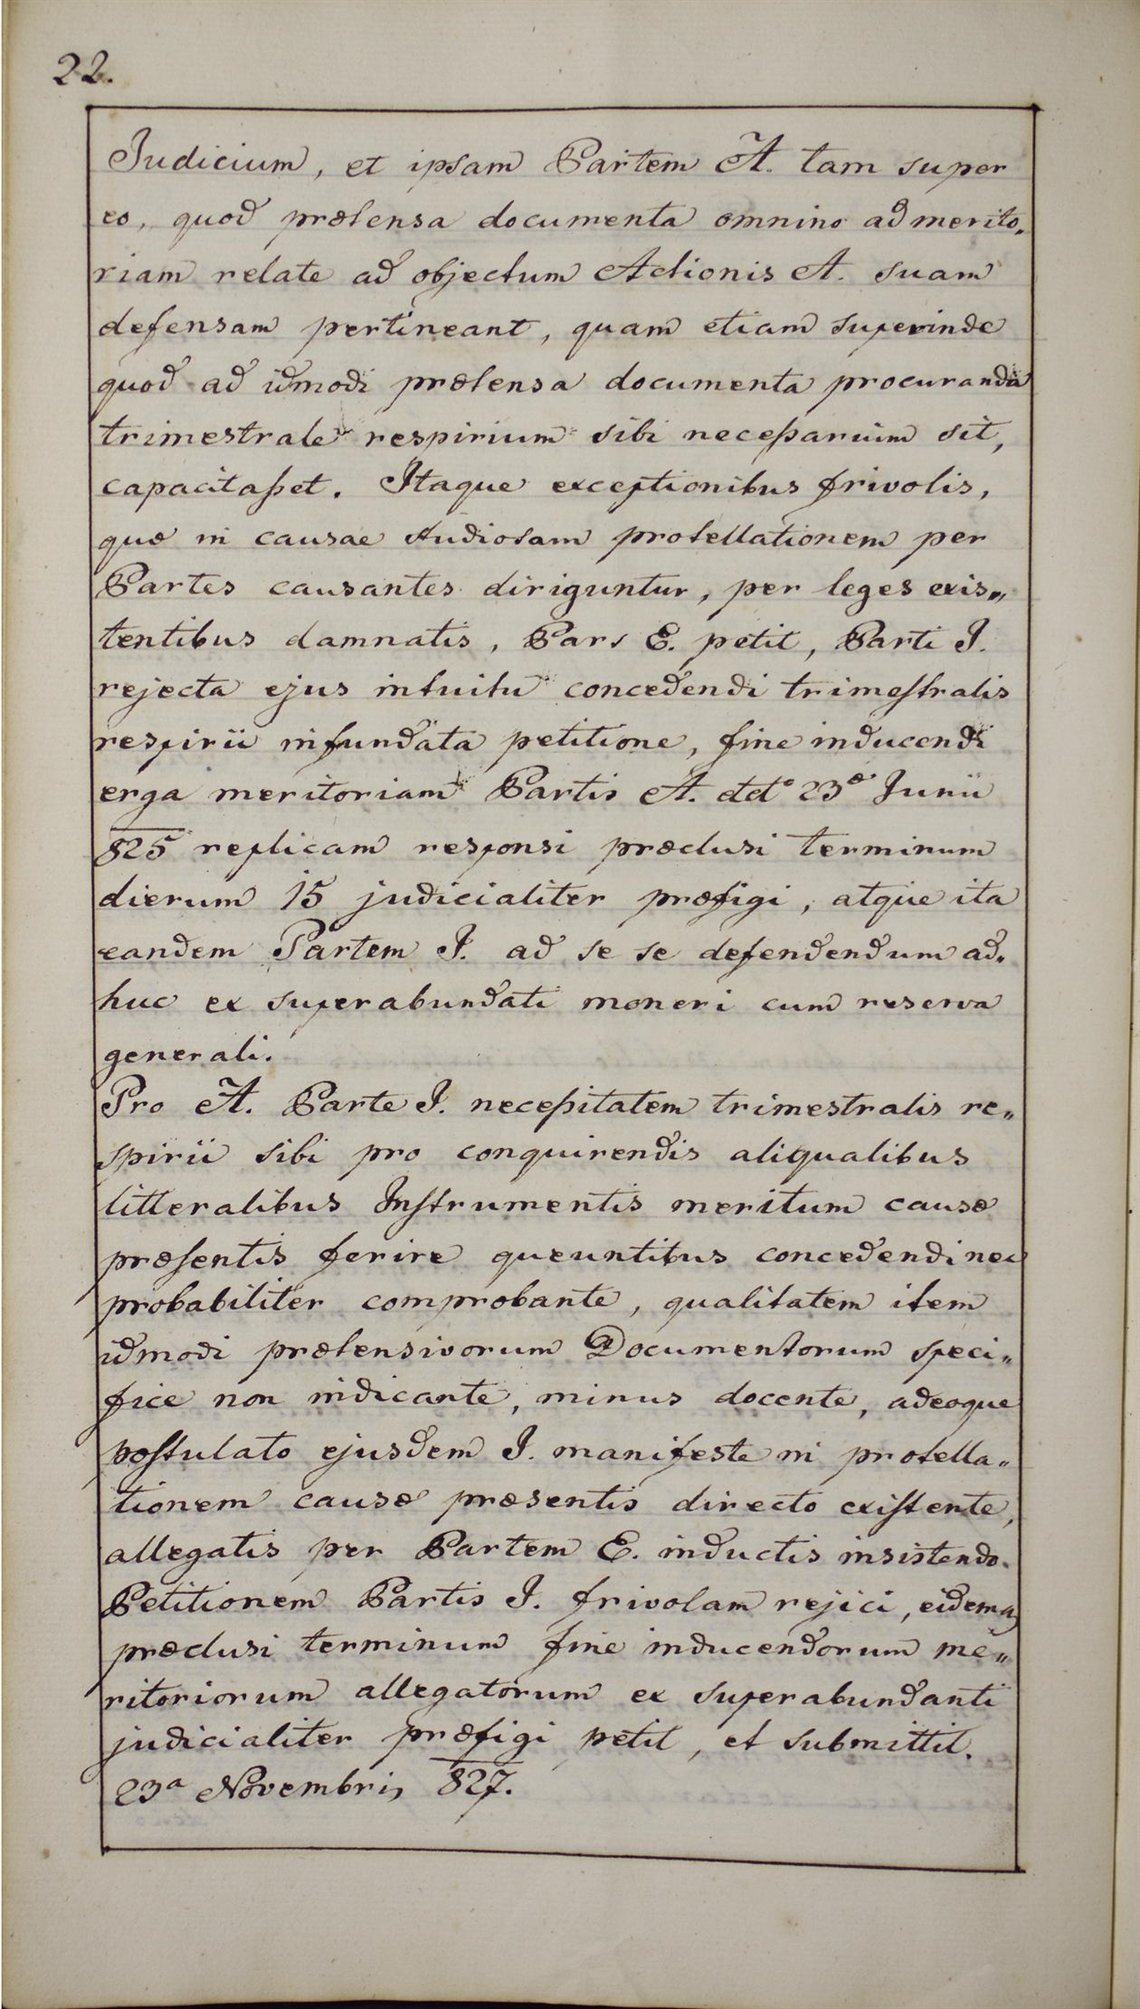 22.
Judicium, et ipsam Partem A. tam super
eo, quod prætensa documenta omnino ad merito„
riam relate ad objectum Actionis A. suam
defensam pertineant, quam etiam superinde
quod ad idmodi prætensa documenta procuranda
trimestrale respirium sibi neceßarium sit,
capacitaßet. Itaque exceptionibus frivolis,
quæ in causae studiosam protellationem per
Partes causantes diriguntur, per leges exis„
tentibus damnatis, Pars E. petit, Parti I.
rejecta ejus intuitu concedendi trimestralis
respirii infundata petitione, fine inducendi
erga meritoriam Partis A. ddto 23æ Junii
825 replicam responsi præclusi terminum
dierum 15 judicialiter præfigi, atque ita
eandem Partem I. ad se se defendendum ad„
huc ex superabundati moneri cum reserva
generali.
Pro A. Parte I. neceßitatem trimestralis re„
spirii sibi pro conquirendis aliqualibus
litteralibus Instrumentis meritum causæ
præsentis ferire queuntibus concedendi nec
probabiliter comprobante, qualitatem item
idmodi prætensivorum Documentorum speci„
fice non indicante, minus docente, adeoque
postulato ejusdem I. manifeste in protella„
tionem causæ præsentis directo existente,
allegatis per Partem E. inductis insistendo.
Petitionem Partis I. frivolam rejici, eidemq
præclusi terminum fine inducendorum me„
ritoriorum allegatorum ex superabundanti
judicialiter præfigi petit, et submittit.
23a Novembris 827.